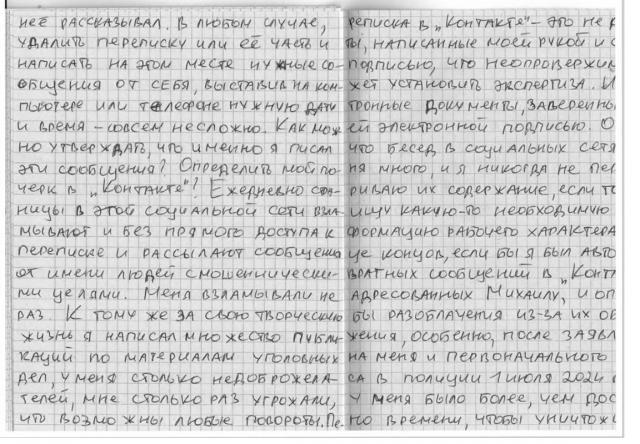 неё рассказывал. В любом случае,
удалить переписку или её часть и
написать на этом месте нужные со-
общения от себя, выставив на ком-
пьютере или телефоне нужную дату
и время – совсем несложно. Как мож-
но утверждать, что именно я писал
эти сообщения? Определить мой по-
черк в „Контакте“? Ежедневно стра-
ницы в этой социальной сети взла-
мывают и без прямого доступа к
переписке и рассылают сообщения
от имени людей с мошеннически-
ми целями. Меня взламывали не
раз. К тому же за свою творческую
жизнь я написал множество публи-
каций по материалам уголовных
дел, у меня столько недоброжела-
телей, мне столько раз угрожали,
что возможны любые повороты. Пе-
реписка в „Контакте“ – это не
ты, написанные моей рукой и с
подписью, что неопровержим
жет установить экспертиза. И
тронные документы, заверенны
ей электронной подписью. О
что бесед в социальных сетя
ня много, и я никогда не пе
риваю их содержание, если т
ищу какую-то необходимую
формацию рабочего характера
це концов, если бы я был авто
вратных сообщений в „Конт
адресованных Михаилу, и оп
бы разоблачения из-за их об
жения, особенно, после заявл
на меня и первоначального
са в полиции 1 июля 2024
у меня было более, чем дос
но времени, чтобы уничтож